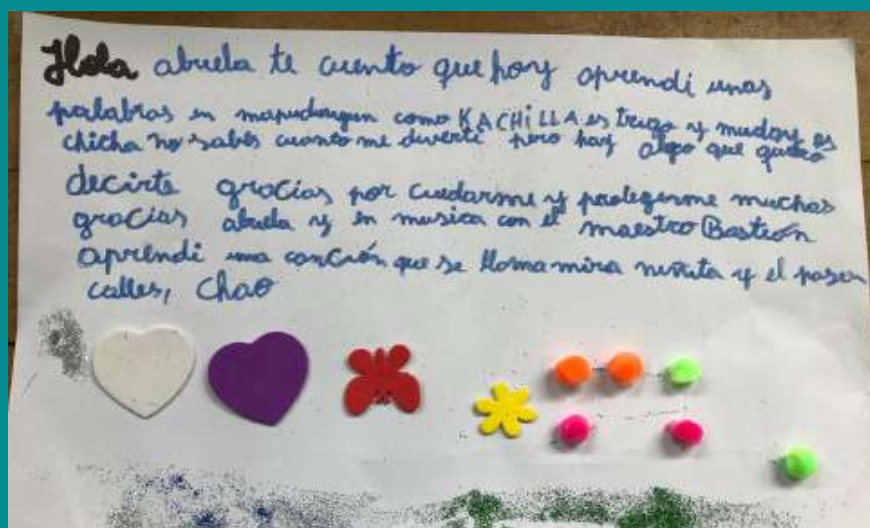 Hola abuela te cuento que hoy aprendi unas
palabras en mapudungun como KACHiLLA es trigo y muday es
chicha no sabes cuanto me diverti pero hay algo que quiero
decirte gracias por cuidarme y protegerme muchas
gracias abuela y en musica con el maestro Bastión
aprendi una canción que se llama mira niñita y el pasea
calles, chao